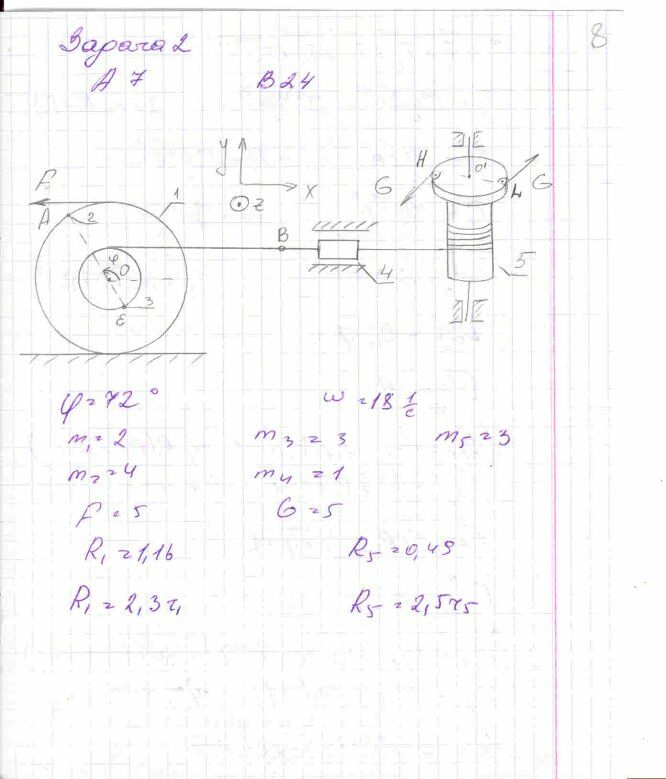 8
Задача 2
А 7 В 24
y
x
z
F
A
2
1
φ
O
E
3
B
4
H
G
O'
L
G
5
φ = 72° ω = 18 1/с
m₁ = 2 m₃ = 3 m₅ = 3
m₂ = 4 m₄ = 1
F = 5 G = 5
R₁ = 1,16 R₅ = 0,49
R₁ = 2,3r₁ R₅ = 2,5r₅